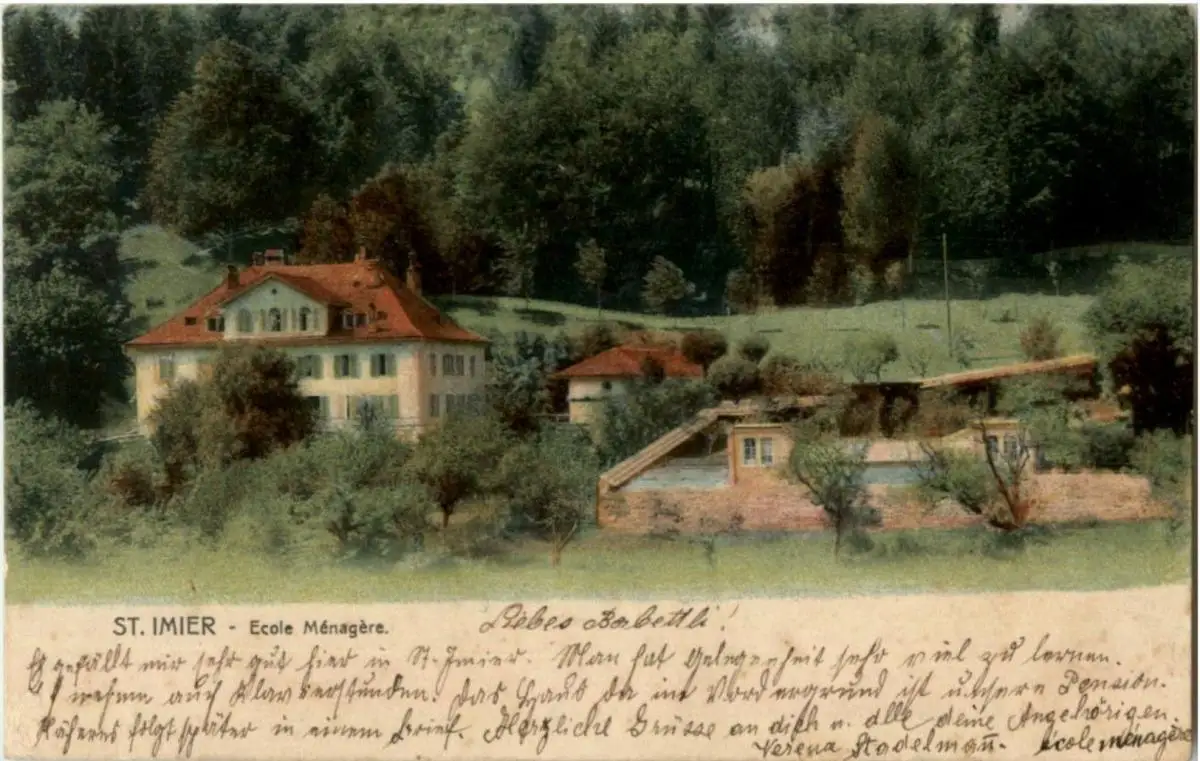 ST. IMIER - Ecole Ménagère.
Liebes Babettli!
Es gefällt mir sehr gut hier in St. Imier. Man hat Gelegenheit sehr viel zu lernen.
Ich nehme auch Klavierstunden. Das Haus da im Vordergrund ist unsere Pension.
Näheres folgt später in einem Brief. Herzliche Grüsse an dich u. alle deine Angehörigen.
Verena Stadelmañ. école ménagère